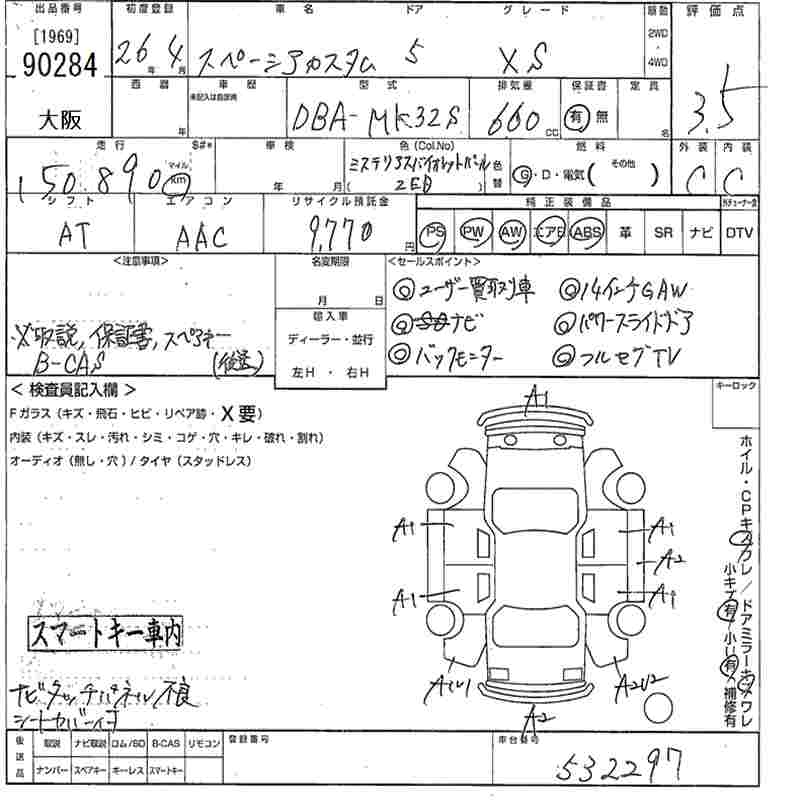 出品番号 初度登録 車名 ドア グレード 駆動 評価点
[1969]
90284
26年 4月 スペーシアカスタム 5 XS 2WD・4WD 3.5
大阪
西暦 年 車歴 未記入は自家用 型式 排気量 保証書 定員
DBA-MK32S 660cc 有 無 名
走行 S#* 車検 色(Col.No) 燃料 外装 内装
150,890 マイル km 年 月 ミステリアスバイオレットパール
( ZED ) 色替 G・D・電気( その他 ) C C
シフト エアコン リサイクル預託金 純正装備品
AT AAC 9,770円 PS PW AW エアB ABS 革 SR ナビ DTV
<注意事項> 名変期限 <セールスポイント>
月 日
◎ユーザー買取車 ◎14インチGAW
輸入車
ディーラー・並行
左H・右H
◎ナビ ◎パワースライドドア
◎バックモニター ◎フルセグTV
※取説,保証書,スペアキー
B-CAS (後送)
<検査員記入欄> キーロック
Fガラス(キズ・飛石・ヒビ・リペア跡・X要)
内装(キズ・スレ・汚れ・シミ・コゲ・穴・キレ・破れ・割れ)
オーディオ(無し・穴)/タイヤ(スタッドレス)
A1
A1 A1
A2
A1 A1
A1U1 A2U2
A2
ホイル・CPキズワレ/ドアミラーキズワレ
小キズ有/小U有/補修有
スマートキー車内
ナビタッチパネル不良
シートカバー付
後送品 取説 ナビ取説 ロム/SD B-CAS リモコン 登録番号 車台番号
ナンバー スペアキー キーレス スマートキー
532297